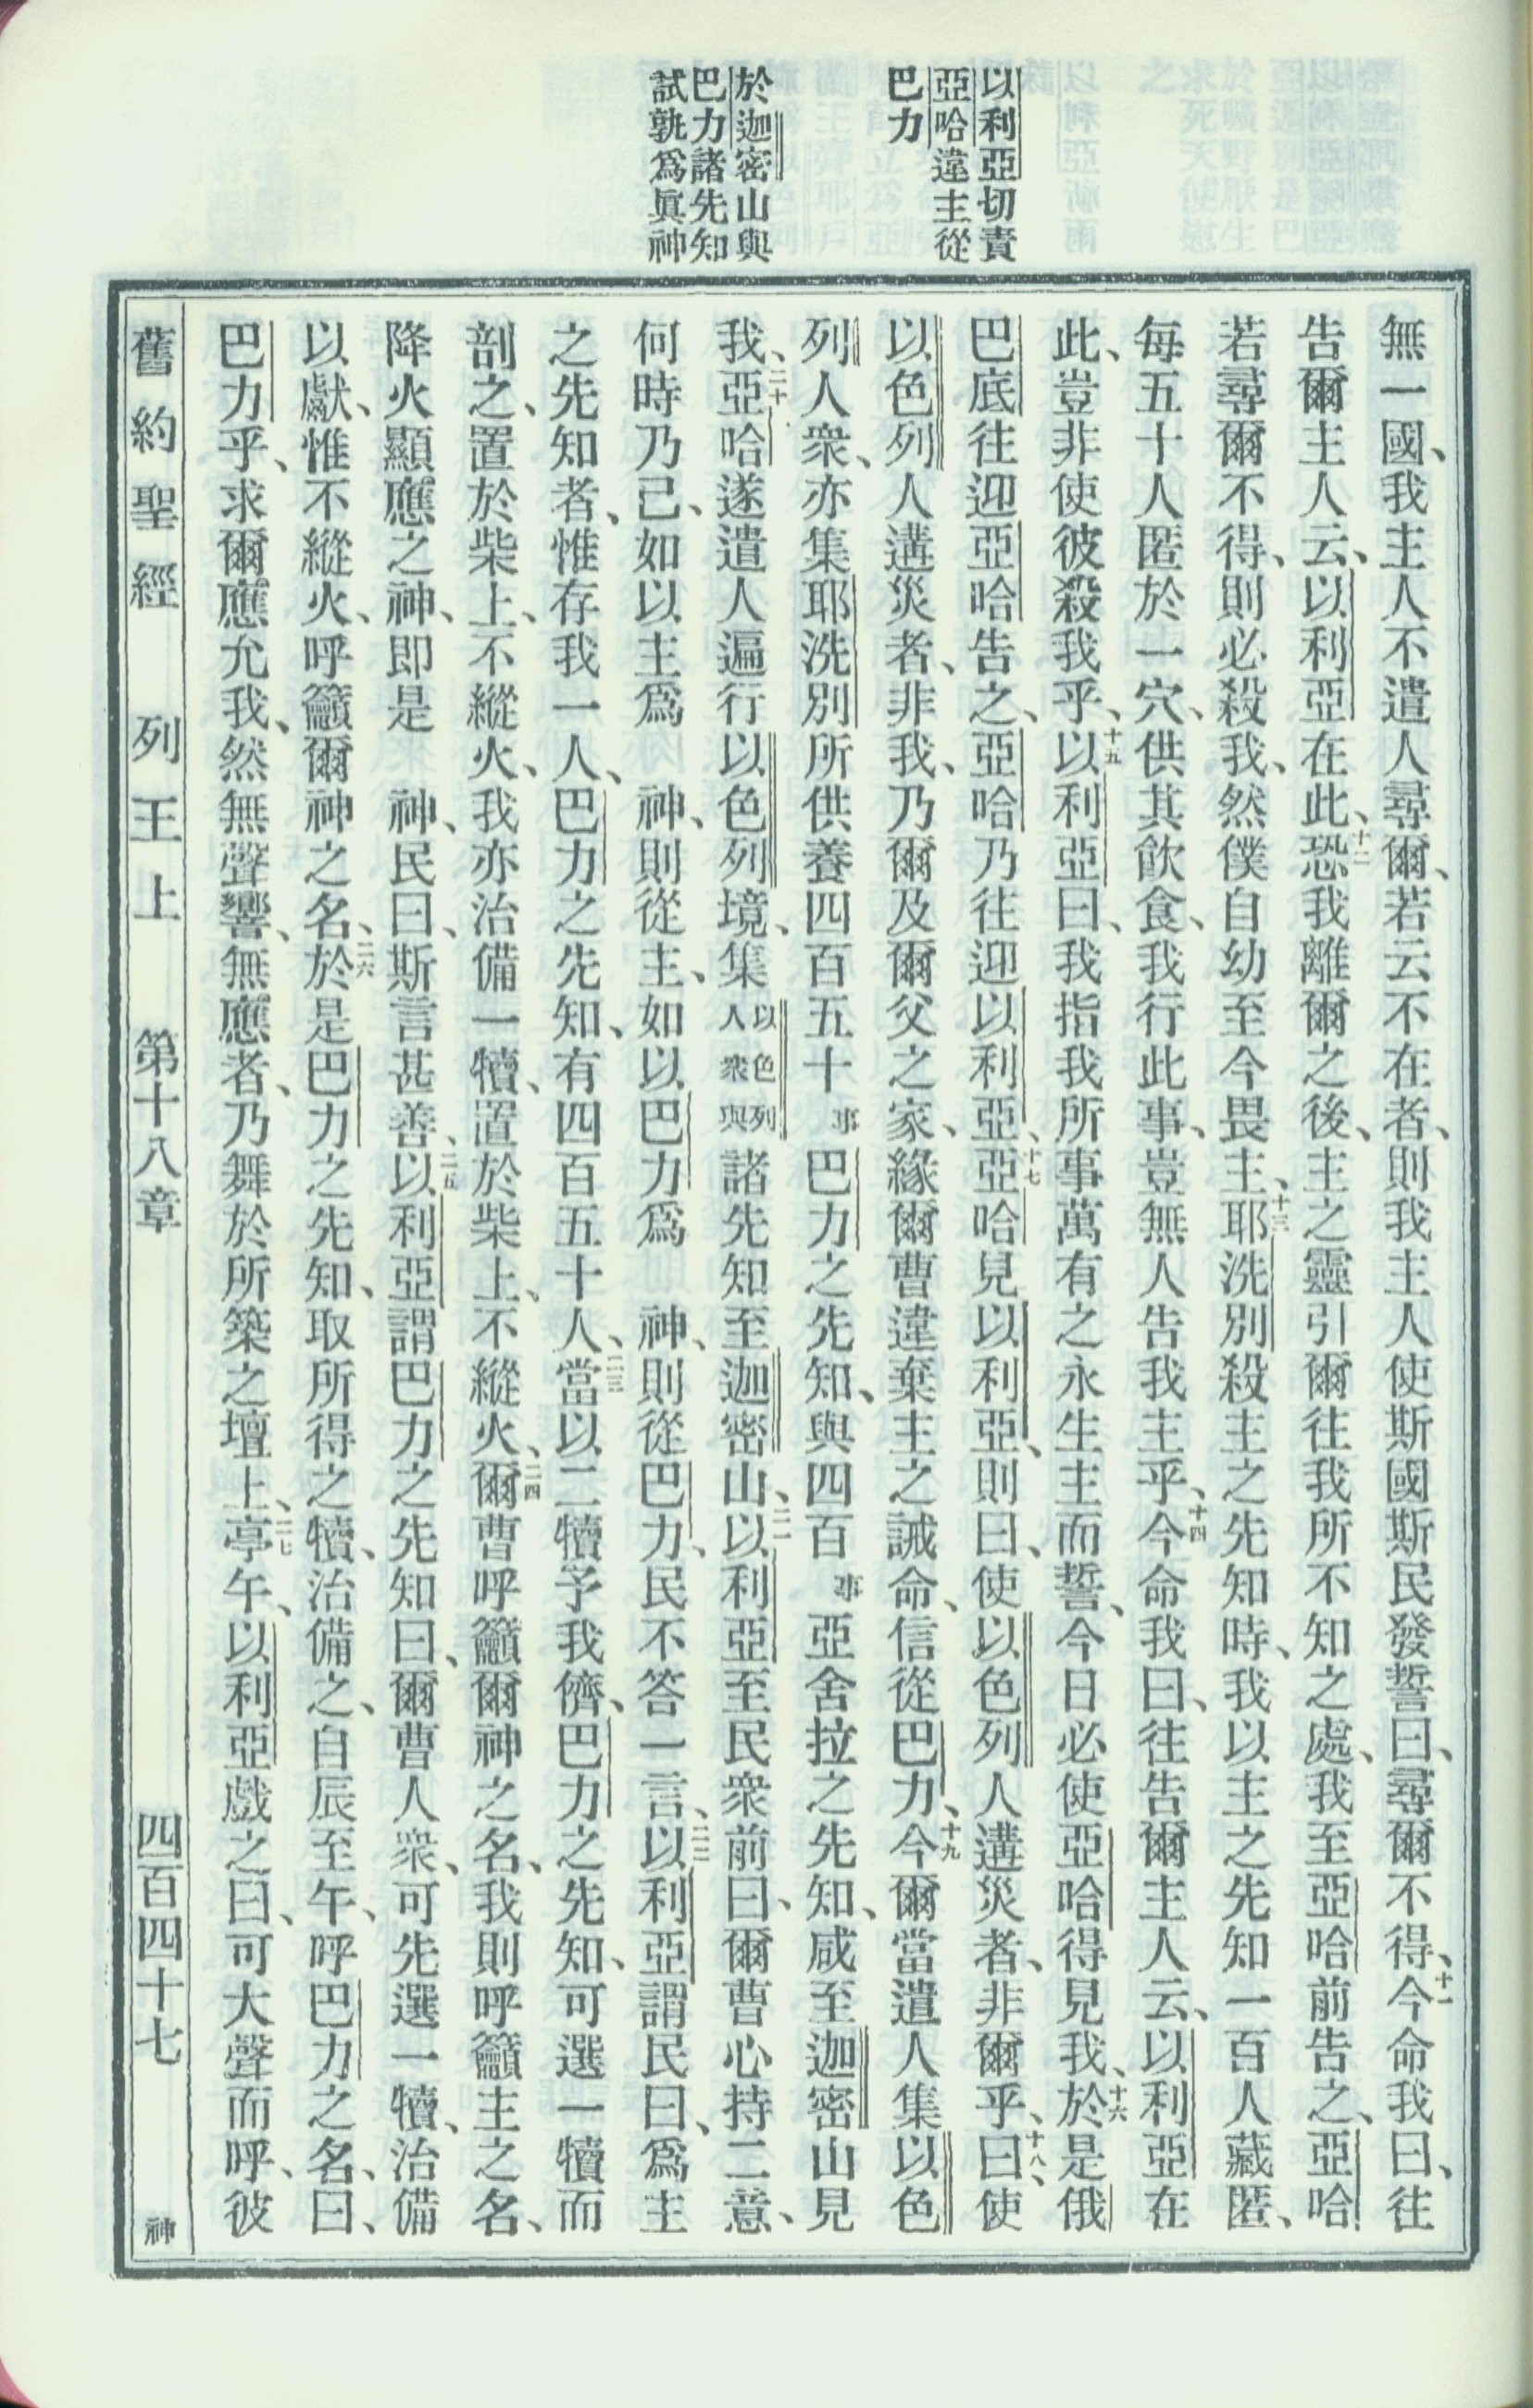 以利亞切責
亞哈違主從
巴力
於迦密山與
巴力諸先知
試孰爲眞神
無一國、我主人不遣人尋爾、若云不在者、則我主人使斯國斯民發誓曰、尋爾不得、十一今命我曰、往
告爾主人云、以利亞在此、十二恐我離爾之後、主之靈引爾往我所不知之處、我至亞哈前告之、亞哈
若尋爾不得、則必殺我、然僕自幼至今畏主、十三耶洗別殺主之先知時、我以主之先知一百人藏匿、
每五十人匿於一穴、供其飲食、我行此事、豈無人告我主乎、十四今命我曰、往告爾主人云、以利亞在
此、豈非使彼殺我乎、十五以利亞曰、我指我所事萬有之永生主而誓、今日必使亞哈得見我、十六於是俄
巴底往迎亞哈告之、亞哈乃往迎以利亞、十七亞哈見以利亞、則曰、使以色列人遘災者、非爾乎、十八曰、使
以色列人遘災者、非我、乃爾及爾父之家、緣爾曹違棄主之誡命、信從巴力、十九今爾當遣人集以色
列人衆、亦集耶洗別所供養四百五十事巴力之先知、與四百事亞舍拉之先知、咸至迦密山見
我、二十亞哈遂遣人遍行以色列境、集以色列人衆與諸先知至迦密山、二一以利亞至民衆前曰、爾曹心持二意、
何時乃已、如以主爲　神、則從主、如以巴力爲　神、則從巴力、民不答一言、二二以利亞謂民曰、爲主
之先知者、惟存我一人、巴力之先知、有四百五十人、二三當以二犢予我儕、巴力之先知、可選一犢而
剖之、置於柴上、不縱火、我亦治備一犢、置於柴上、不縱火、二四爾曹呼籲爾神之名、我則呼籲主之名、
降火顯應之神、即是　神、民曰、斯言甚善、二五以利亞謂巴力之先知曰、爾曹人衆、可先選一犢、治備
以獻、惟不縱火、呼籲爾神之名、二六於是巴力之先知、取所得之犢、治備之、自辰至午、呼巴力之名、曰、
巴力乎、求爾應允我、然無聲響、無應者、乃舞於所築之壇上、二七亭午、以利亞戲之曰、可大聲而呼、彼
舊約聖經　列王上　第十八章　四百四十七　神